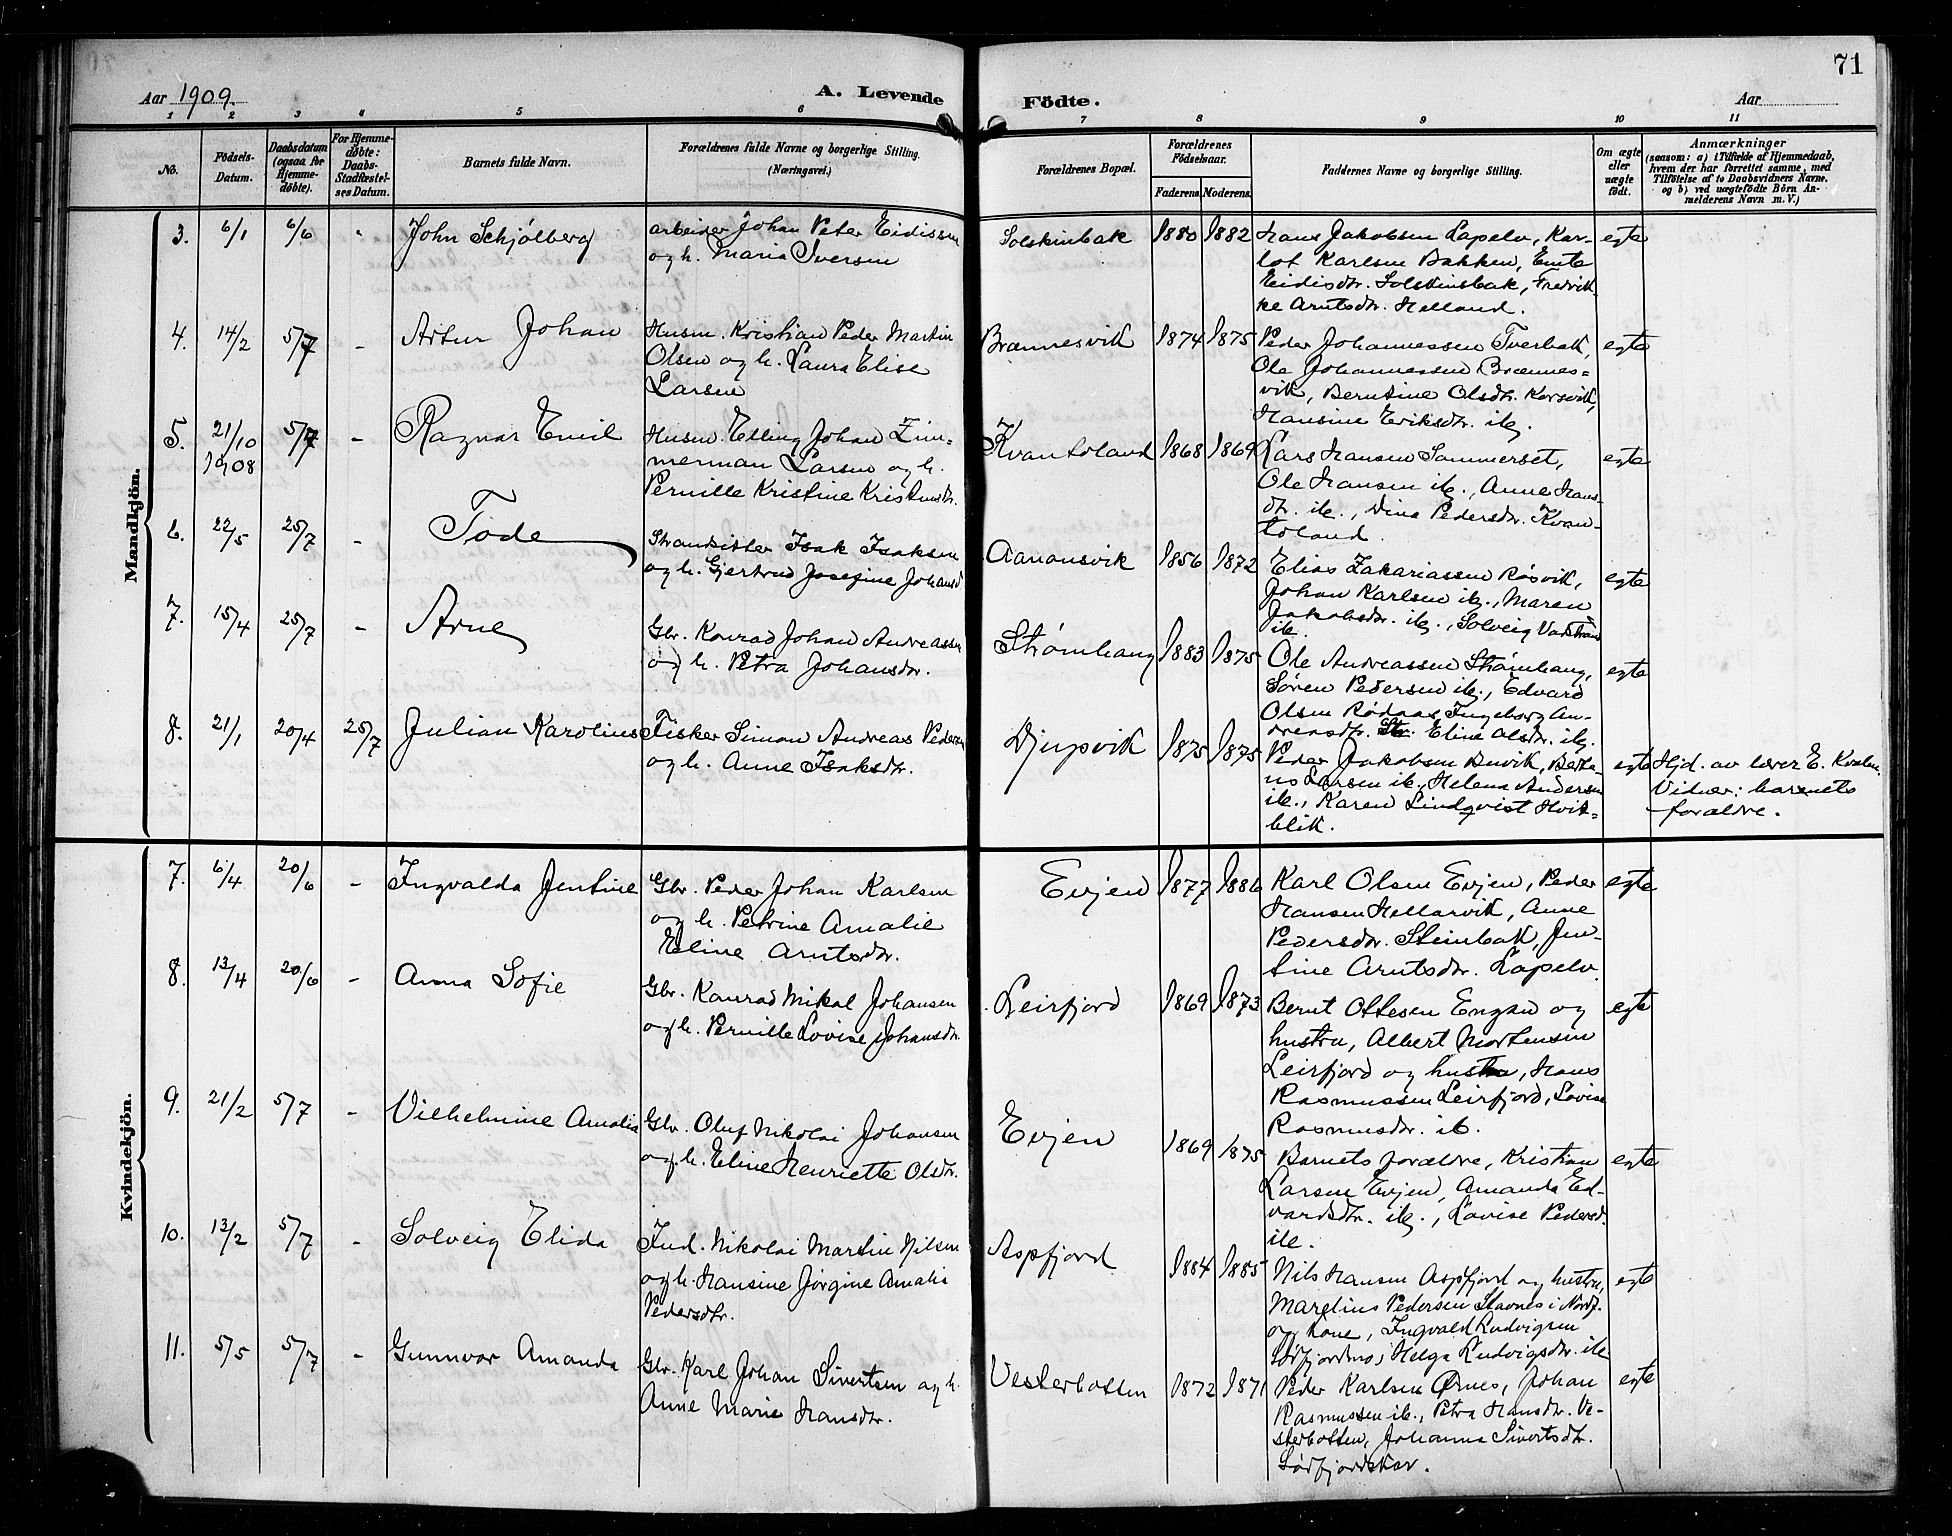 71
Aar 1909.
A. Levende
Födte.
Aar
1
2
3
4
5
6
7
8
9
10
11
No.
Födsels-
Datum.
Daabsdatum
(ogsaa for
Hjemme-
døbte).
For Hjemme-
døbte:
Daabs-
Stadfæstel-
ses Datum.
Barnets fulde Navn.
Forældrenes fulde Navne og borgerlige Stilling.
(Næringsvei.)
Forældrenes Bopæl.
Forældrenes
Födselsaar.
Faderens. Moderens.
Faddernes Navne og borgerlige Stilling.
Om ægte
eller
uægte
født.
Anmærkninger
(saasom: a) i Tilfælde af Hjemmedaab,
hvem der har forrettet samme, med
Tilføielse af to Daabsvidners Navne.
og b) ved uægtefödte Börn An-
melderens Navn m.V.)
Mandkjön.
3. 6/1 6/6 - John Schjølberg
arbeider Johan Peter Eidissen
og h. Maria Iversen
Solskinbak 1880 1882
Hans Jakobsen Lapelv, Kar-
lot Karlsen Bakken, Emte
Eidisdtr. Solskinsbak, Fredrik-
ke Arntsdtr. Helland.
egte
4. 14/2 5/7 - Artur Johan
Husm. Kristian Peder Martin
Olsen og h. Laura Elise
Larsen
Brænnesvik 1874 1875
Peder Johannessen Tverbak,
Ole Johannessen Brænnes-
vik, Berntine Olsdtr. Korsvik,
Hansine Eriksdtr. ib.
egte
5. 21/10 1908 5/7 - Ragnar Emil
Husm. Elling Johan Zim-
merman Larsen og h.
Pernille Kristine Kristensdtr.
Kvantoland 1868 1869
Lars Hansen Sommerset,
Ole Hansen ib., Anne Hans-
dtr. ib., Dina Pedersdtr. Kvan-
toland.
egte
6. 22/5 25/7 - Tode
Strandsitter Isak Isaksen
og h. Gjertrud Josefine Johansd
Aanonsvik 1856 1872
Elias Zakariassen Røsvik,
Johan Karlsen ib., Maren
Jakobsdtr. ib., Solveig Vadstrand
ib.
egte
7. 15/4 25/7 - Arne
Gbr. Konrad Johan Andreassen
og h. Petra Johansdtr.
Strømhaug 1883 1875
Ole Andreassen Strømhaug,
Søren Pedersen ib., Edvard
Olsen Rødaas, Ingeborg An-
dreasdtr. Str. Eline Olsdtr. ib.
egte
8. 21/1 20/4 25/7 Julian Karolius
Fisker Simon Andreas Pedersen
og h. Anne Isaksdtr.
Djupvik 1875 1875
Peder Jakobsen Buvik, Berta-
us Larsen ib., Helena Andersen
ib., Karen Lindqvist Hvit-
blik.
egte
Hjd. av lærer E. Kvalnes
Vidner: barnets
forældre.
Kvindekjön.
7. 6/4 20/6 - Ingvalda Jentine
Gbr. Peder Johan Karlsen
og h. Petrine Amalie
Eline Arntsdtr.
Evjen 1877 1886
Karl Olsen Evjen, Peder
Hansen Hellarvik, Anne
Pedersdtr. Steinbak, Jen-
tine Arntsdtr. Lapelv.
egte
8. 13/4 20/6 - Anna Sofie
Gbr. Konrad Mikal Johansen
og h. Pernille Lovise Johansdtr.
Leirfjord 1869 1873
Bernt Ottesen Engan og
hustru, Albert Mortensen
Leirfjord og hustru, Hans
Rasmussen Leirfjord, Lovise
Rasmusdtr. ib.
egte
9. 21/2 5/7 - Vilhelmine Amalia
Gbr. Oluf Nikolai Johansen
og h. Eline Henriette Olsdtr.
Evjen 1869 1875
Barnets forældre, Kristian
Larsen Evjen, Amanda Ed-
vardsdtr. ib., Lovise Pedersd.
ib.
egte
10. 13/2 5/7 - Solveig Elida
Ind. Nikolai Martin Nilsen
og h. Hansine Jørgine Amalia
Pedersdtr.
Aspfjord 1884 1885
Nils Hansen Aspfjord og hustru,
Marelius Pedersen Stavnes i Nordf.
og kone, Ingvald Ludvigsen
Sørfjordmo, Helga Ludvigsdtr. ib
egte
11. 5/5 5/7 - Gunnvor Amanda
Gbr. Karl Johan Sivertsen og h.
Anne Marie Hansdtr.
Vesterbotten 1872 1871
Peder Karlsen Ørnes, Johan
Rasmussen ib., Petra Hansdtr. Ve-
sterbotten, Johanna Sivertsdtr.
Sørfjordskar.
egte